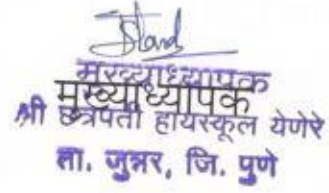 मुख्याध्यापक
मुख्याध्यापक
श्री छत्रपती हायस्कूल येणेरे
ता. जुन्नर, जि. पुणे